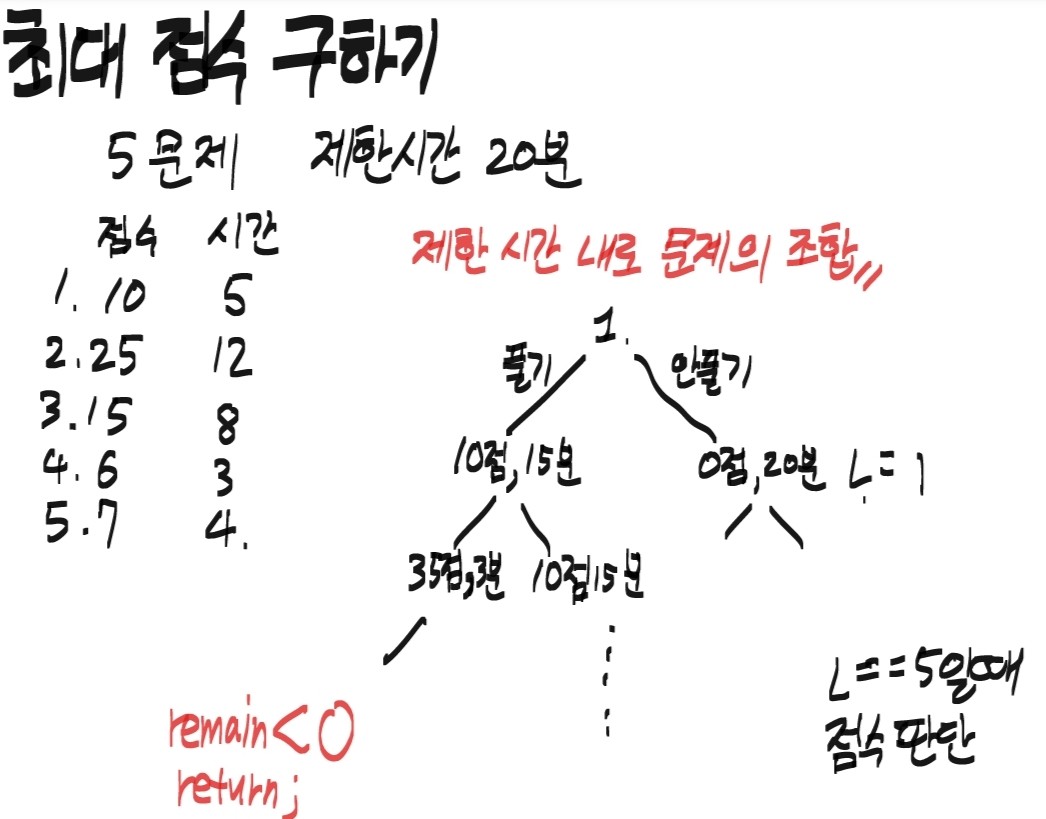 최대 점수 구하기
5 문제 제한시간 20분
점수 시간
1. 10 5
2. 25 12
3. 15 8
4. 6 3
5. 7 4.
제한 시간 내로 문제의 조합,,
1.
풀기 안풀기
10점, 15분 0점, 20분 L = 1
35점, 3분 10점 15분
remain < 0
return;
L == 5일때
점수 판단